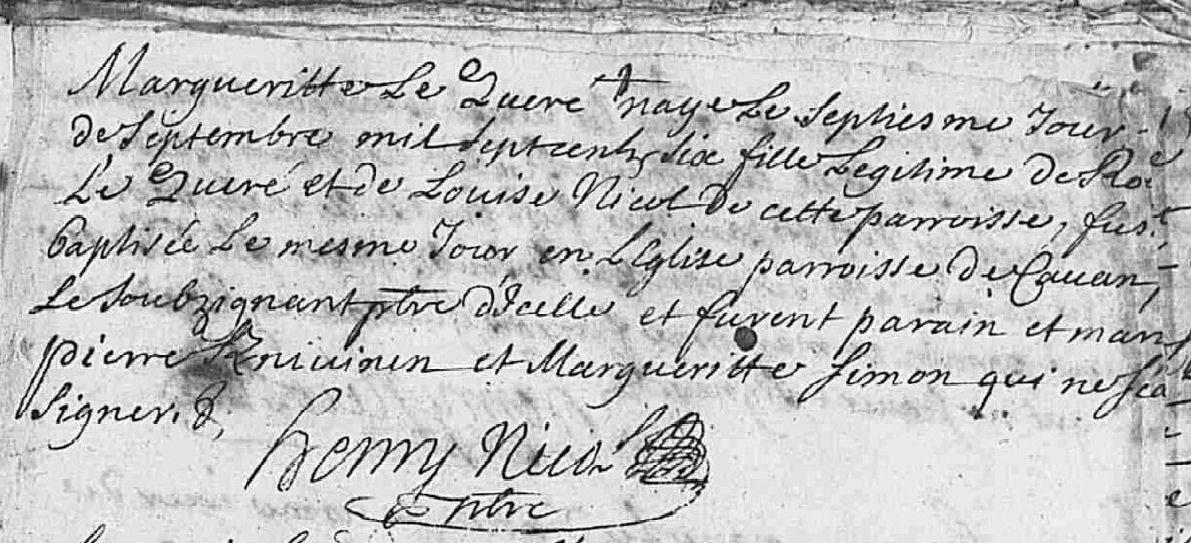 Margueritte Le Queré naye Le septiesme Jour
de Septembre mil Sept cents Six fille Legitime de Ro
Le Queré et de Louise Nicol de cette parroisse, fust
baptisée Le mesme Jour en LEglise parroisse de Cauan,
Le Soubzignant ptre d'Icelle et furent parain et mar
pierre et Margueritte Simon qui ne sca
signer. &,
henry Nicol
ptre